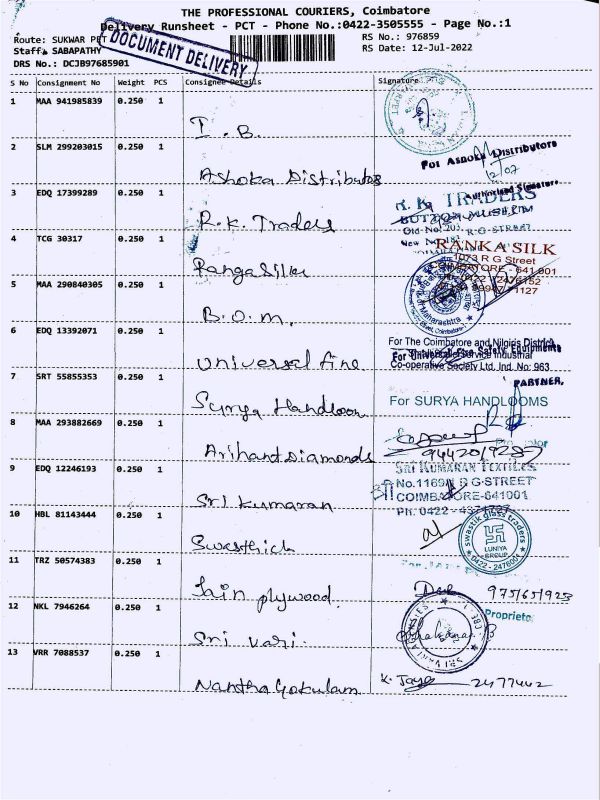 THE PROFESSIONAL COURIERS, Coimbatore
Delivery Runsheet - PCT - Phone No.:0422-3505555 - Page No.:1
Route: SUKWAR PET
RS No.: 976859
Staff: SABAPATHY
RS Date: 12-Jul-2022
DRS No.: DCJB97685901
DOCUMENT DELIVERY
S No Consignment No Weight PCS Consignee Details Signature
1 MAA 941985839 0.250 1
I.B.
2 SLM 299203015 0.250 1
For Ashoka Distributors
12/07
Ashoka Distributos
Authorised Signature
3 EDQ 17399289 0.250 1
R.K. TRADERS
BUTTON MUSEUM
Old No. 203, R.G-STREET
New No.
R.K. Traders
4 TCG 30317 0.250 1
RANKA SILK
1073 R G Street
COIMBATORE - 641 001
2476152
1127
Ranga Silk
5 MAA 290840305 0.250 1
B.O.M.
6 EDQ 13392071 0.250 1
For The Coimbatore and Nilgiris District
For Universal Fire Safety Equipments
Service Industrial
Co-operative Society Ltd, Ind. No: 963
Universal fine
PARTNER.
7 SRT 55855353 0.250 1
For SURYA HANDLOOMS
Surya Handloom
8 MAA 293882669 0.250 1
Arihant Diamonds
9 EDQ 12246193 0.250 1
SRI KUMARAN TEXTILES
No.1169 R G-STREET
COIMBATORE-641001
Sri kumaran
PH: 0422 -
10 HBL 81143444 0.250 1
swastik glass traders
LUNIYA GROUP
0422-2476001
Swasthick
11 TRZ 50574383 0.250 1
Jain plywood.
975/65/928
Proprietor
12 NKL 7946264 0.250 1
Sri Vari.
13 VRR 7088537 0.250 1
K. Jaya 2477442
Nantha Gokulam